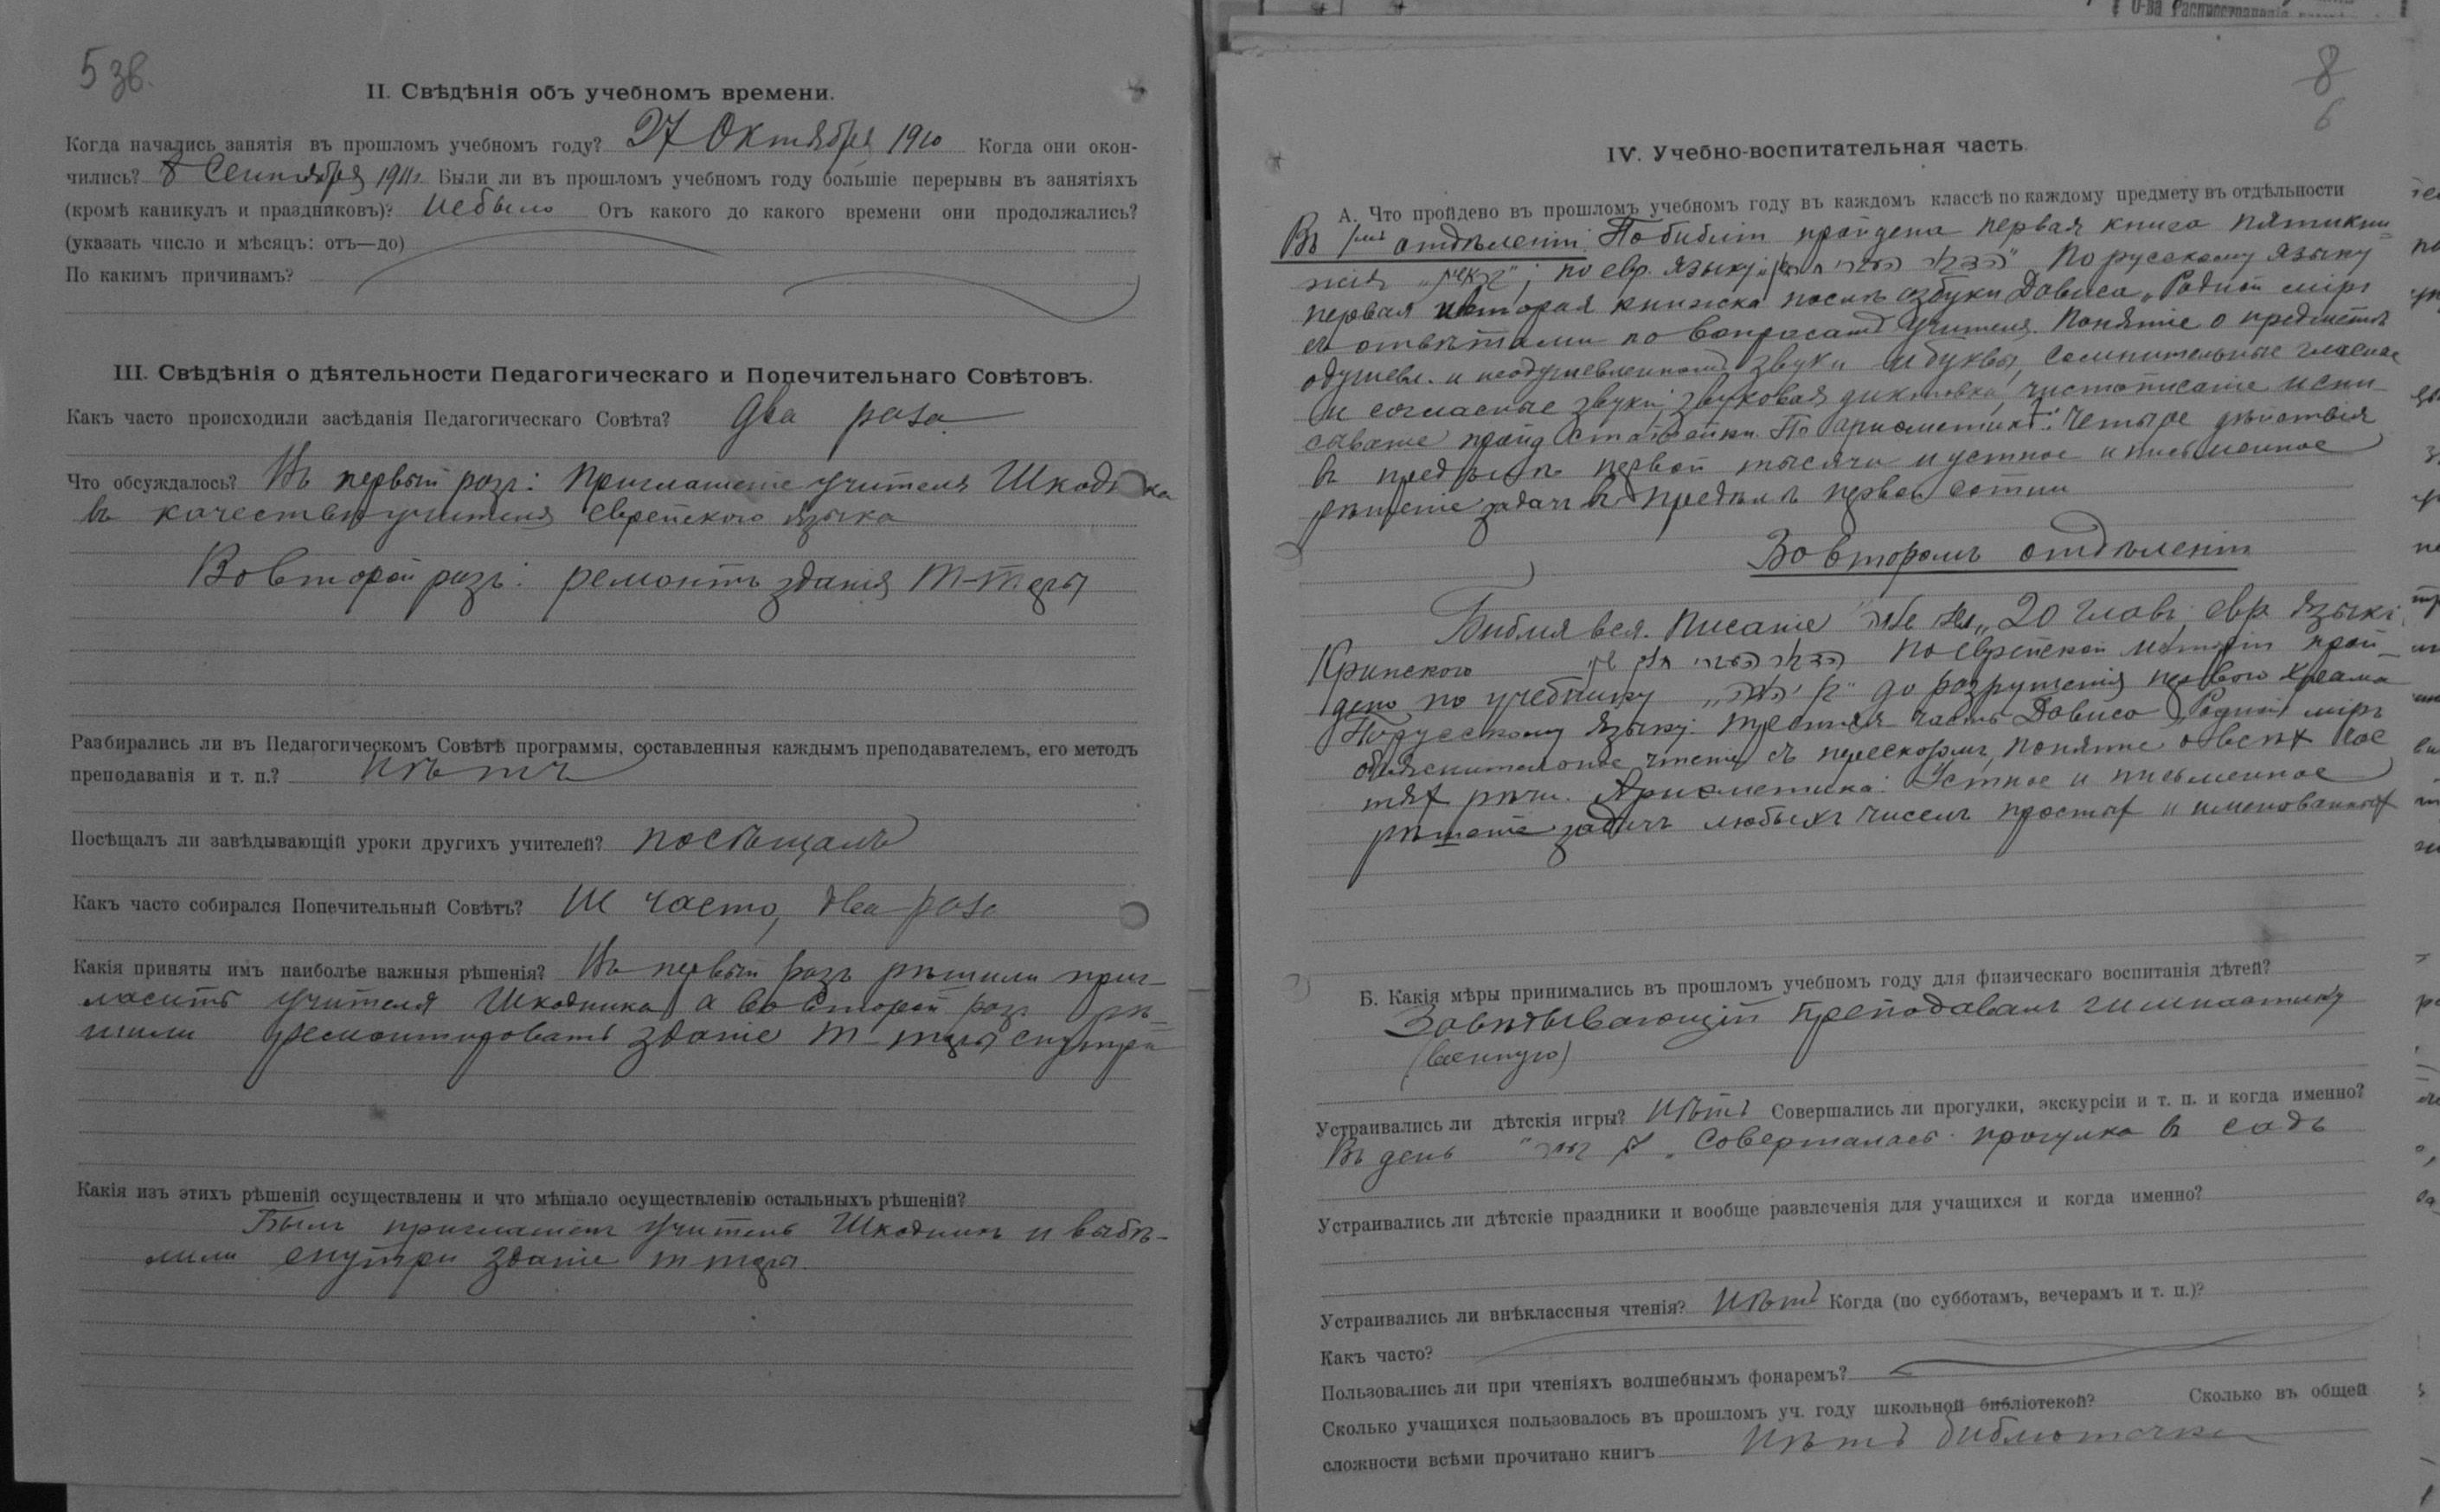 5 зв.
II. Свѣдѣнія объ учебномъ времени.
Когда начались занятія въ прошломъ учебномъ году? 27 Октября 1910 Когда они окон-
чились? 8 Сентября 1911 Были ли въ прошломъ учебномъ году большіе перерывы въ занятіяхъ
(кромѣ каникулъ и праздниковъ)? небыло Отъ какого до какого времени они продолжались?
(указать число и мѣсяцъ: отъ—до)
По какимъ причинамъ?
III. Свѣдѣнія о дѣятельности Педагогическаго и Попечительнаго Совѣтовъ.
Какъ часто происходили засѣданія Педагогическаго Совѣта? Два раза
Что обсуждалось? Въ первый разъ: приглашеніе учителя Шкодника
въ качествѣ учителя еврейского языка
Во второй разъ: ремонтъ зданія Т-торы
Разбирались ли въ Педагогическомъ Совѣтѣ программы, составленныя каждымъ преподавателемъ, его методъ
преподаванія и т. п.? Нѣтъ
Посѣщалъ ли завѣдывающій уроки другихъ учителей? посѣщалъ
Какъ часто собирался Попечительный Совѣтъ? Не часто, два раза
Какія приняты имъ наиболѣе важныя рѣшенія? Въ первый разъ рѣшили приг-
ласить учителя Шкодника, а во второй разъ рѣ-
шили ремонтировать зданіе Т-торы снутри
Какія изъ этихъ рѣшеній осуществлены и что мѣшало осуществленію остальныхъ рѣшеній?
Былъ приглашенъ учитель Шкодникъ и выбѣ-
лили снутри зданіе т торы.
О-ва Распространенія
8
6
IV. Учебно-воспитательная часть.
А. Что пройдено въ прошломъ учебномъ году въ каждомъ классѣ по каждому предмету въ отдѣльности
Въ 1мъ отдѣленіи: По библіи пройдена первая книга пятикни-
жія; по евр. языку По русскому языку
первая и вторая книжка послѣ азбуки Дависа „Родной міръ
съ отвѣтами по вопросамъ учителя. Понятіе о предметѣ
одушевл. и неодушевленномъ звуки и буквы, сомнительные гласные
и согласные звуки; звуковая диктовка, чистописаніе и спи-
сываніе пройд статейки. По ариѳметикѣ: Четыре дѣйствія
въ предѣлѣ первой тысячи и устное и письменное
рѣшеніе задачъ въ предѣлѣ первой сотни
Во второмъ отдѣленіи
Библія вся. Писаніе 20 главъ, евр языкъ
Кринского по еврейской исторіи прой-
дено по учебнику до разрушенія первого храма
По русскому языку: третья часть Дависа „Родной міръ
объяснительное чтеніе съ пересказомъ, понятіе о всѣх час
тях рѣчи. Ариѳметика: Устное и письменное
рѣшеніе задачъ любыхъ чиселъ простых и именованных
Б. Какія мѣры принимались въ прошломъ учебномъ году для физическаго воспитанія дѣтей?
Завѣдывающій преподавалъ гимнастику
(военную)
Устраивались ли дѣтскія игры? Нѣтъ Совершались ли прогулки, экскурсіи и т. п. и когда именно?
Въ день совершалась прогулка въ садъ
Устраивались ли дѣтскіе праздники и вообще развлеченія для учащихся и когда именно?
Устраивались ли внѣклассныя чтенія? Нѣтъ Когда (по субботамъ, вечерамъ и т. п.)?
Какъ часто?
Пользовались ли при чтеніяхъ волшебнымъ фонаремъ?
Сколько учащихся пользовалось въ прошломъ уч. году школьной библіотекой? Сколько въ общей
сложности всѣми прочитано книгъ Нѣтъ библіотечки